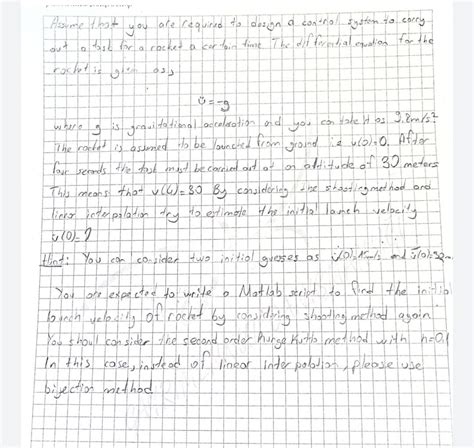 Assume that you are required to design a control system to carry
out a task for a rocket a certain time. The differential equation for the
rocket is given as;
ü = -g
where g is gravitational acceleration and you can take it as 9.8m/s².
The rocket is assumed to be launched from ground i.e v(0)=0. After
four seconds the task must be carried out at an altitude of 30 meters
This means that v(4)=30 By considering the shooting method and
linear interpolation try to estimate the initial launch velocity
v̇(0)=?
Hint: You can consider two initial guesses as and
You are expected to write a Matlab script to find the initial
launch velocity of rocket by considering shooting method again.
You shoul consider the second order Runge Kutta method with h=0.1
In this case, instead of linear interpolation, please use
bijection method.